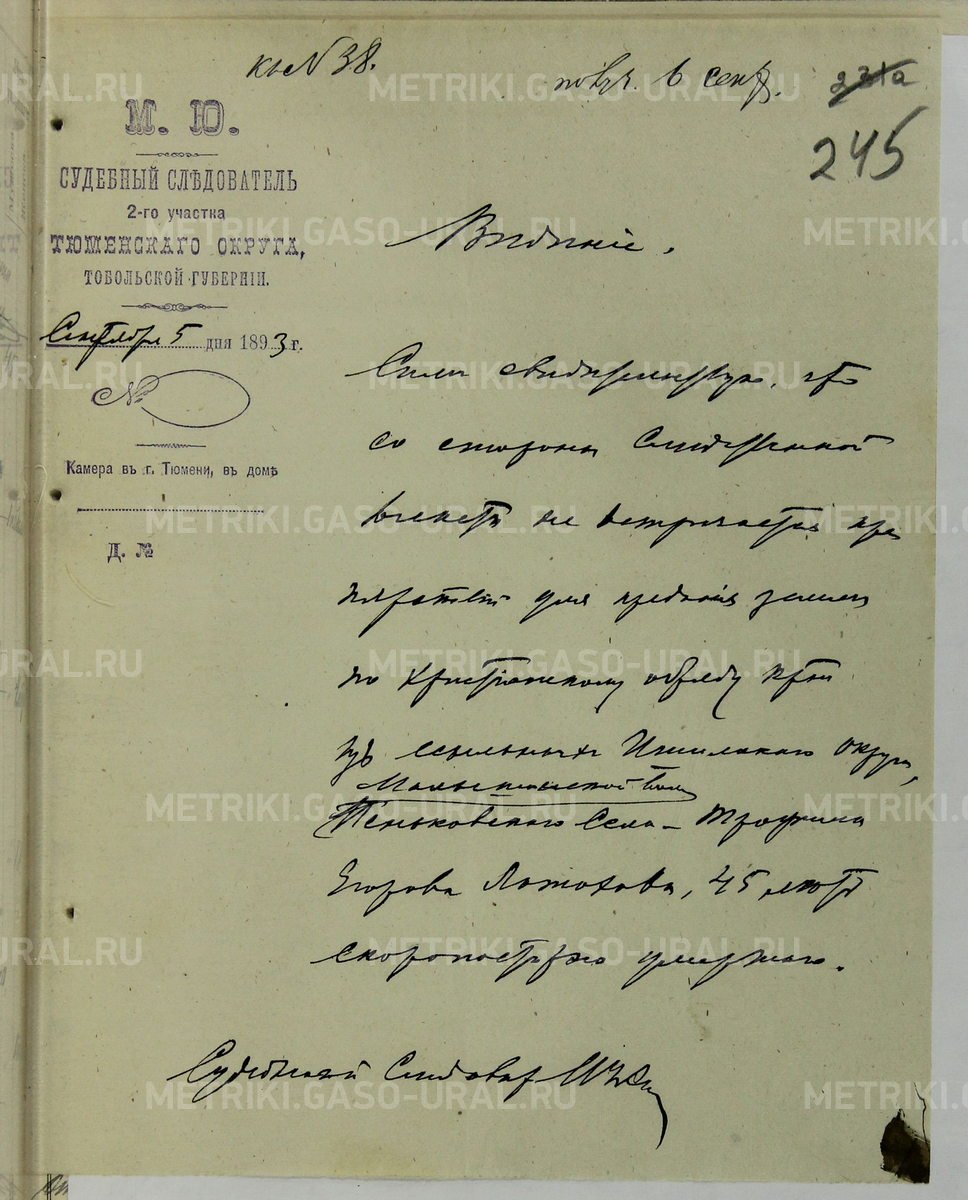 къ № 38.
погр. 6 сент.
245
М. Ю.
СУДЕБНЫЙ СЛѢДОВАТЕЛЬ
2-го участка
ТЮМЕНСКАГО ОКРУГА,
ТОБОЛЬСКОЙ ГУБЕРНІИ.
Сентября 5 дня 1893 г.
№
Камера въ г. Тюмени, въ домѣ
Д. №
Симъ свидѣтельствую, что
со стороны Слѣдственной
власти не встрѣчается пре
пятствій для преданія землѣ
по христіанскому обряду кр-на
изъ ссыльныхъ Ишимскаго округа,
Волос
Пеньковскаго Села - Трофима
Егорова 45 лѣтъ
скоропостижно умершаго.
Судебный Слѣдоват
METRIKI.GASO-URAL.RU